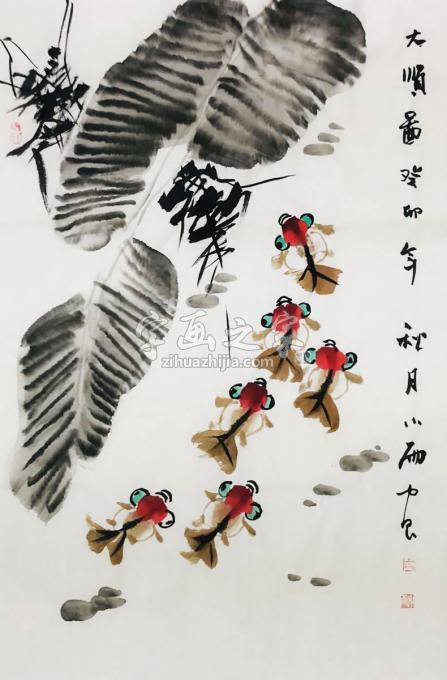 大順畐癸卯年 秋月小雨
字画之家
zihuazhijia.com